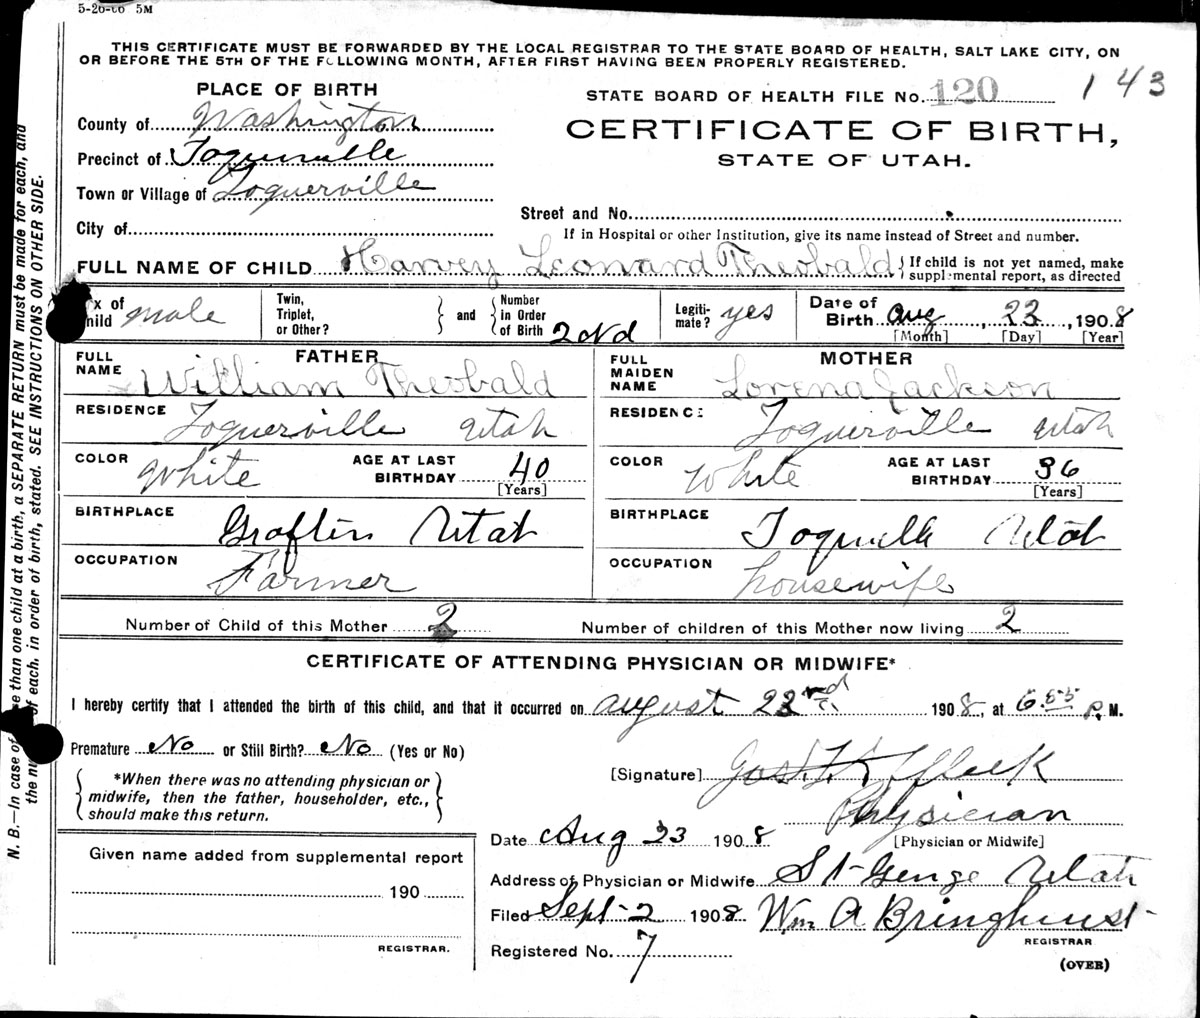 5-26-06 5M
THIS CERTIFICATE MUST BE FORWARDED BY THE LOCAL REGISTRAR TO THE STATE BOARD OF HEALTH, SALT LAKE CITY, ON
OR BEFORE THE 5TH OF THE FOLLOWING MONTH, AFTER FIRST HAVING BEEN PROPERLY REGISTERED.
143
PLACE OF BIRTH
STATE BOARD OF HEALTH FILE No. 120
County of Washington
CERTIFICATE OF BIRTH,
Precinct of Toquerville
STATE OF UTAH.
Town or Village of Toquerville
Street and No.
City of
If in Hospital or other Institution, give its name instead of Street and number.
FULL NAME OF CHILD Harvey Leonard Theobald } If child is not yet named, make
supplemental report, as directed
x of
hild male
Twin,
Triplet,
or Other?
} and {
Number
in Order
of Birth 2nd
Legiti-
mate? yes
Date of
Birth Aug, 23, 1908
[Month] [Day] [Year]
FATHER
FULL
NAME William Theobald
RESIDENCE Toquerville Utah
COLOR White
AGE AT LAST
BIRTHDAY 40
[Years]
BIRTHPLACE Grafton Utah
OCCUPATION Farmer
MOTHER
FULL
MAIDEN
NAME Lorena Jackson
RESIDENCE Toquerville Utah
COLOR White
AGE AT LAST
BIRTHDAY 36
[Years]
BIRTHPLACE Toquerville Utah
OCCUPATION housewife
Number of Child of this Mother 2 Number of children of this Mother now living 2
CERTIFICATE OF ATTENDING PHYSICIAN OR MIDWIFE*
I hereby certify that I attended the birth of this child, and that it occurred on august 23 rd 1908, at 6.55 P. M.
Premature No or Still Birth? No (Yes or No)
*When there was no attending physician or
midwife, then the father, householder, etc.,
should make this return.
[Signature]
Physician
[Physician or Midwife]
Date Aug 23 1908
Address of Physician or Midwife St George Utah
Filed Sept 2 1908 Wm A Bringhurst
REGISTRAR
Registered No. 7
(OVER)
Given name added from supplemental report
190
REGISTRAR.
N. B.—In case of e than one child at a birth, a SEPARATE RETURN must be made for each, and
the nu of each, in order of birth, stated. SEE INSTRUCTIONS ON OTHER SIDE.